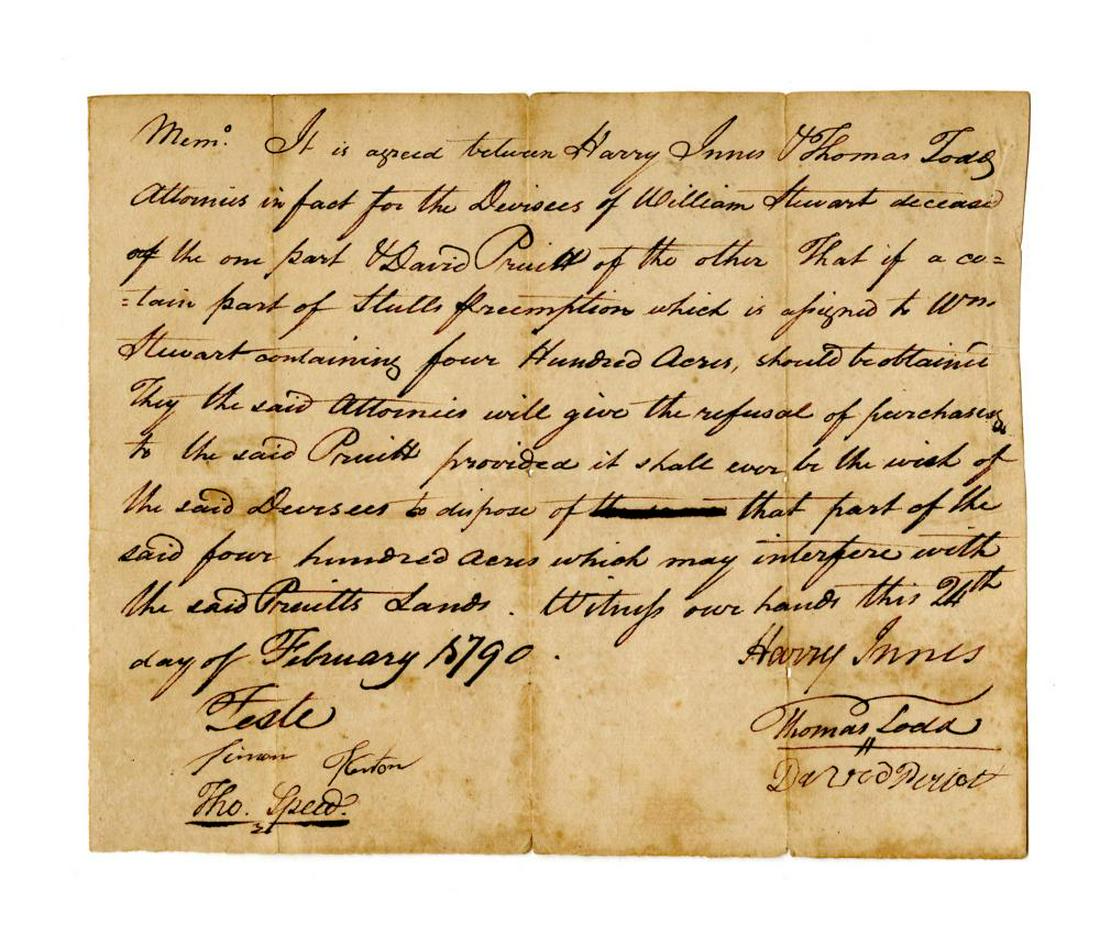 Memo. It is agreed between Harry Innes & Thomas Todd
Attornies in fact for the Devisees of William Stewart deceased
of the one part & David Pruitt of the other That if a ce=
=tain part of Stulls Preemption which is assigned to Wm.
Stewart containing four Hundred Acres, should be obtained
They the said Attornies will give the refusal of purchasing
to the said Pruitt provided it shall ever be the wish of
the said Devisees to dispose of that part of the
said four hundred Acres which may interfere with
the said Pruitts Lands. Witness our hands this 24th
day of February 1790.
Harry Innes
Teste
Thomas Todd
Simon Kenton
David Periott
Tho. Speed.